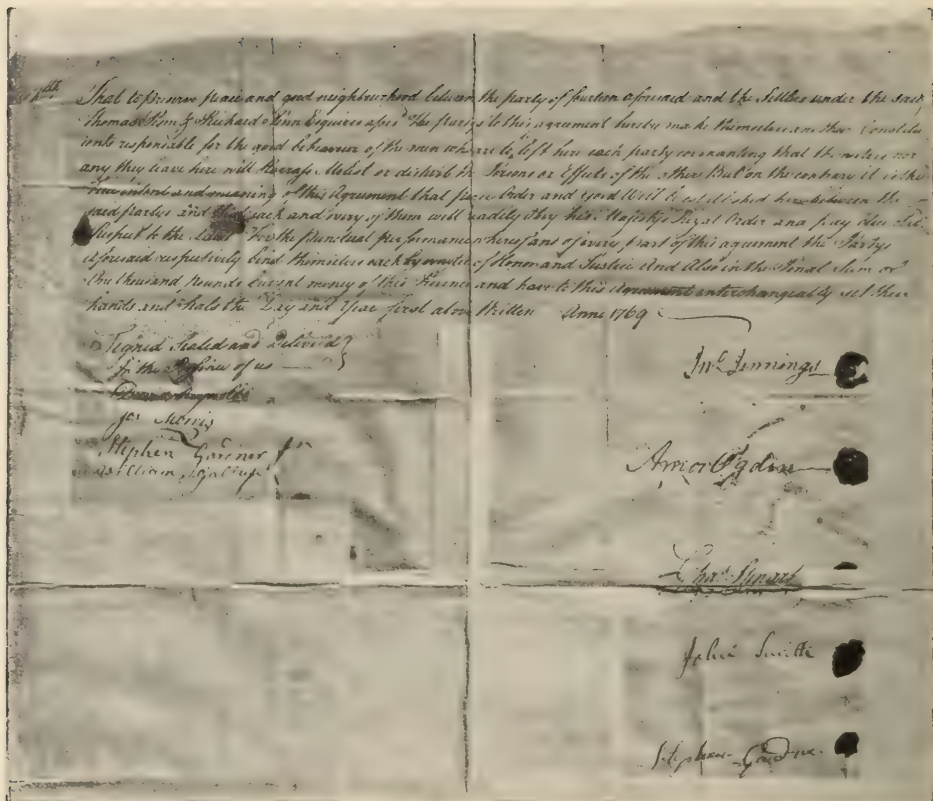 That to preserve peace and good neighbourhood between the party of fourteen aforesaid and the Settlers under the said
Thomas Penn & Richard Penn Esquires afors^d The partys to this agreement hereby make themselves and their Constitu
ents responsable for the good behaviour of the men who are to be left here each party covenanting that themselves nor
any they leave here will Molest or disturb the Persons or Effects of the other But on the contrary it is the
True intent and meaning of this Agreement that peace Order and Good Will be established here between the
said partys and that each and every of them will readily Obey his Majestys Royal Order and pay due
Respect to the Laws For the punctual performance hereof and of every part of this agreement the Partys
aforesaid respectively bind themselves each by of Honor and Justice And Also in the Penal Sum of
One thousand pounds Current money of this Province and have to this Agreement interchangeably set their
hands and Seals the Day and Year first above Written Anno 1769
Signed Sealed and Delivered
In the Presence of us
Jos Morris
Stephen Gardner Jn
William Gallup
Jn^o Jennings
Amos Ogden
Cha^s Stewart
John Smith
Stephen Gardner